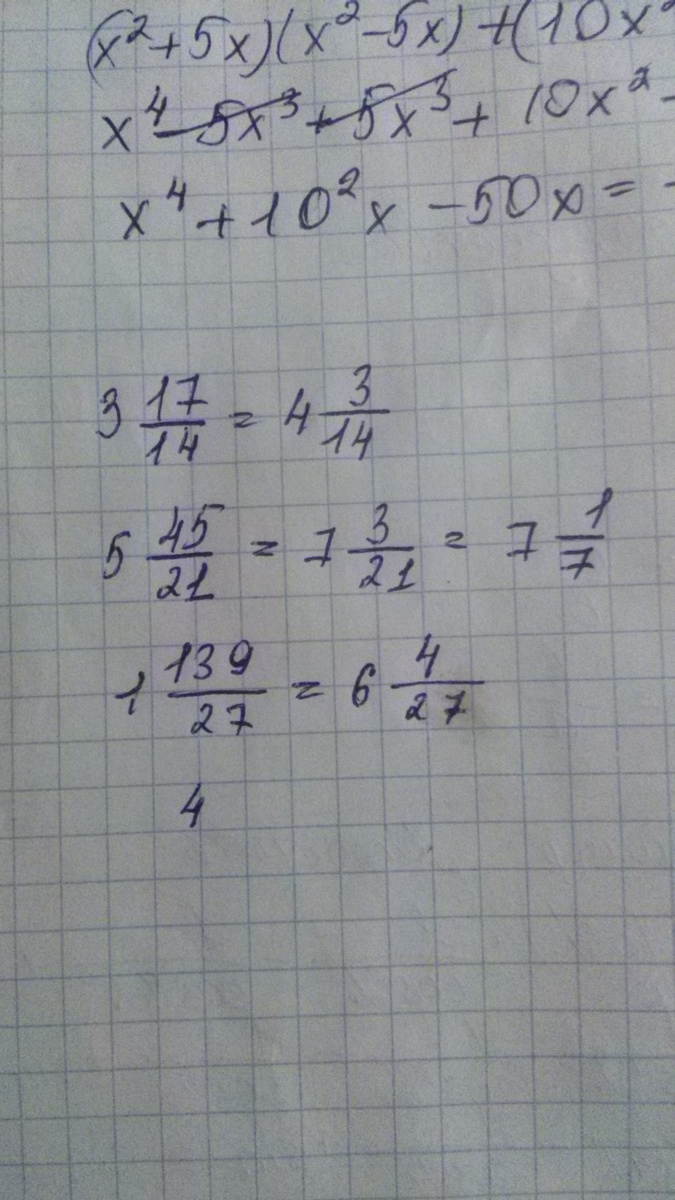 (x²+5x)(x²-5x)+(10x²
x⁴-5x³+5x³+10x²-
x⁴+10²x-50x=-
3 17/14 = 4 3/14
5 45/21 = 7 3/21 = 7 1/7
1 139/27 = 6 4/27
4